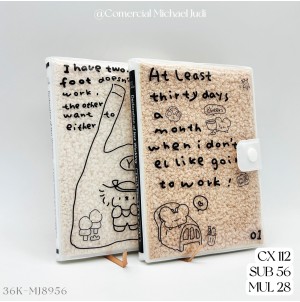 @Comercial Michael Judi
I have two
foot doesn't
work,
the other
want to
either
At least
thirty days
a
month
when i don't
el like goi
to work!
01
CX 112
SUB 56
MUL 28
36K-MJ8956